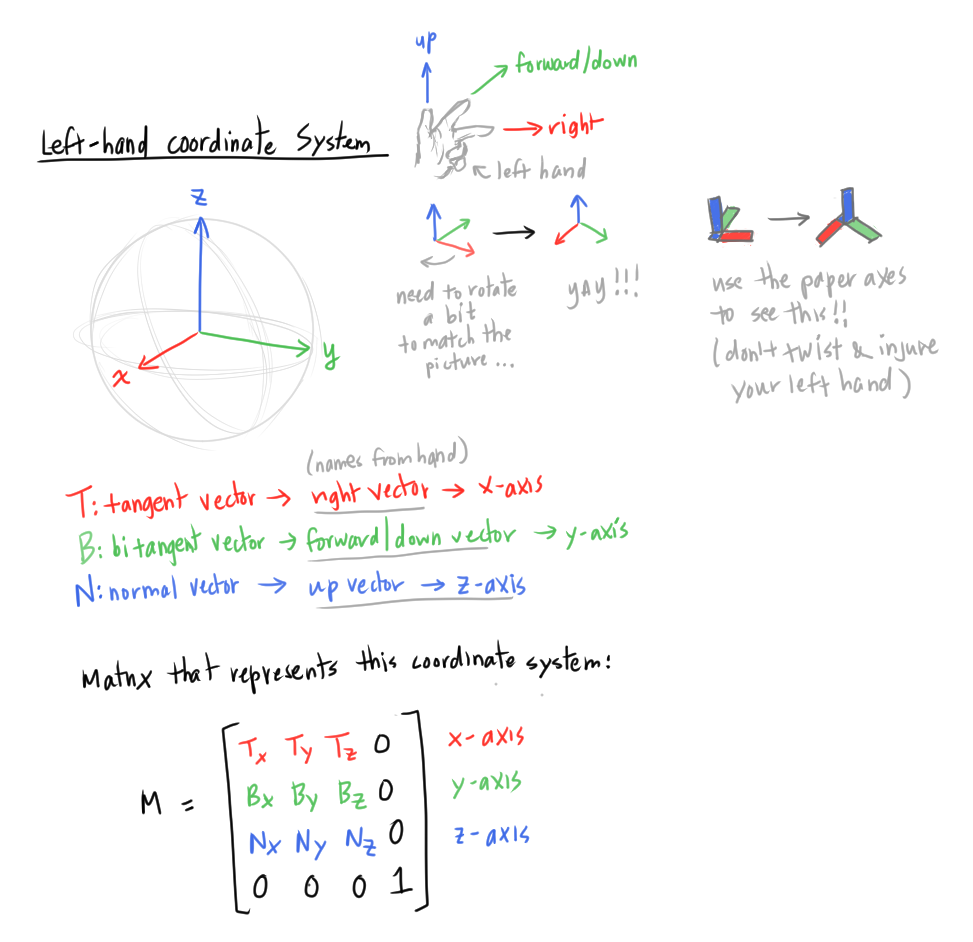 up
forward/down
right
left hand
Left-hand coordinate System
z
x
y
need to rotate
a bit
to match the
picture ...
YAY!!!
use the paper axes
to see this!!
(don't twist & injure
your left hand)
(names from hand)
T: tangent vector → right vector → x-axis
B: bitangent vector → forward/down vector → y-axis
N: normal vector → up vector → z-axis
Matrix that represents this coordinate system:
M = [ Tx Ty Tz 0 ] x-axis
Bx By Bz 0 y-axis
Nx Ny Nz 0 z-axis
0 0 0 1